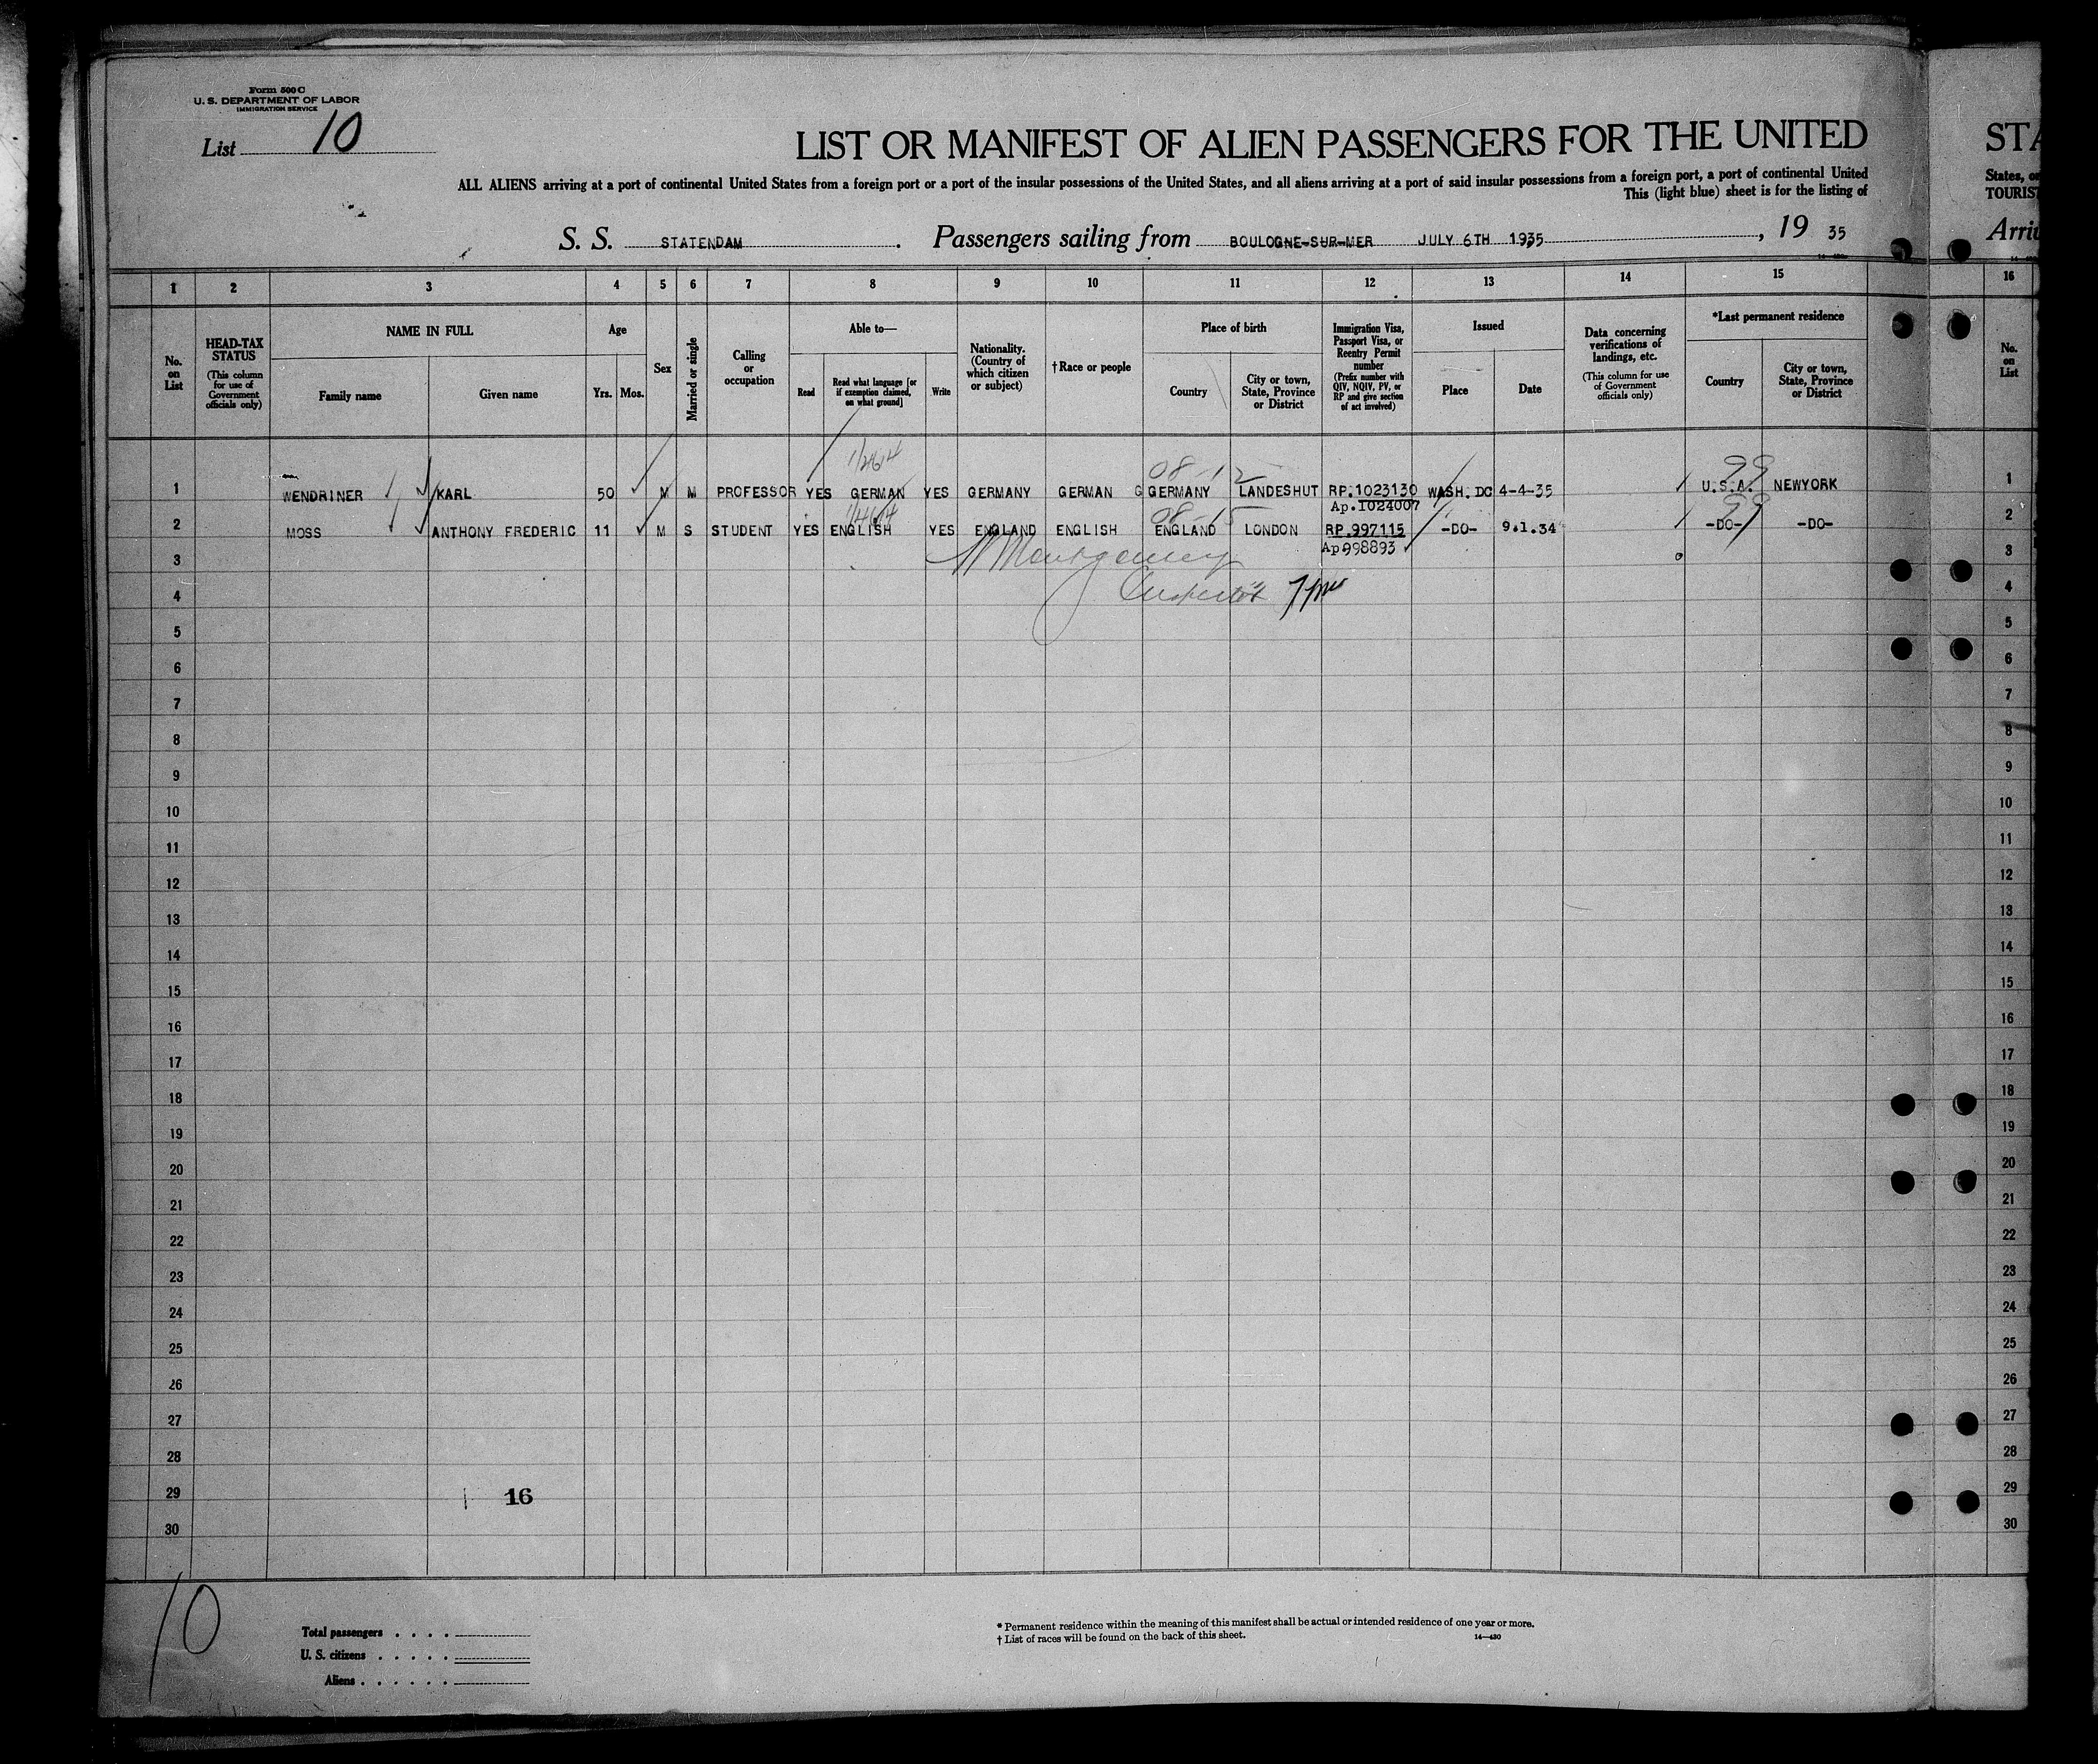 Form 500 C
U. S. DEPARTMENT OF LABOR
IMMIGRATION SERVICE
List 10
LIST OR MANIFEST OF ALIEN PASSENGERS FOR THE UNITED
STA
ALL ALIENS arriving at a port of continental United States from a foreign port or a port of the insular possessions of the United States, and all aliens arriving at a port of said insular possessions from a foreign port, a port of continental United
States, or
This (light blue) sheet is for the listing of
TOURIST
S. S. STATENDAM . Passengers sailing from BOULOGNE-SUR-MER JULY 6TH 1935 , 19 35
Arriv
1 2 3 4 5 6 7 8 9 10 11 12 13 14 15 16
No. on List
HEAD-TAX STATUS (This column for use of Government officials only)
NAME IN FULL
Family name
Given name
Age
Yrs. Mos.
Sex
Married or single
Calling or occupation
Able to—
Read
Read what language [or if exemption claimed, on what ground]
Write
Nationality. (Country of which citizen or subject)
†Race or people
Place of birth
Country
City or town, State, Province or District
Immigration Visa, Passport Visa, or Reentry Permit number (Prefix number with QIV, NQIV, PV, or RP and give section of act involved)
Issued
Place
Date
Data concerning verifications of landings, etc. (This column for use of Government officials only)
*Last permanent residence
Country
City or town, State, Province or District
No. on List
08-12 99
1 WENDRINER KARL 50 M M PROFESSOR YES GERMAN YES GERMANY GERMAN G GERMANY LANDESHUT RP.1023130 WASH. DC 4-4-35 U.S.A. NEWYORK 1
Ap.1024007
08-15 99
2 MOSS ANTHONY FREDERIC 11 M S STUDENT YES ENGLISH YES ENGLAND ENGLISH ENGLAND LONDON RP.997115 -DO- 9.1.34 -DO- -DO- 2
Ap998893
3 Montgomery 3
4 Inspector 4
5 5
6 6
7 7
8 8
9 9
10 10
11 11
12 12
13 13
14 14
15 15
16 16
17 17
18 18
19 19
20 20
21 21
22 22
23 23
24 24
25 25
26 26
27 27
28 28
29 16 29
30 30
10
Total passengers . . . .
U. S. citizens . . . . .
Aliens . . . . . .
* Permanent residence within the meaning of this manifest shall be actual or intended residence of one year or more.
† List of races will be found on the back of this sheet.
14—430